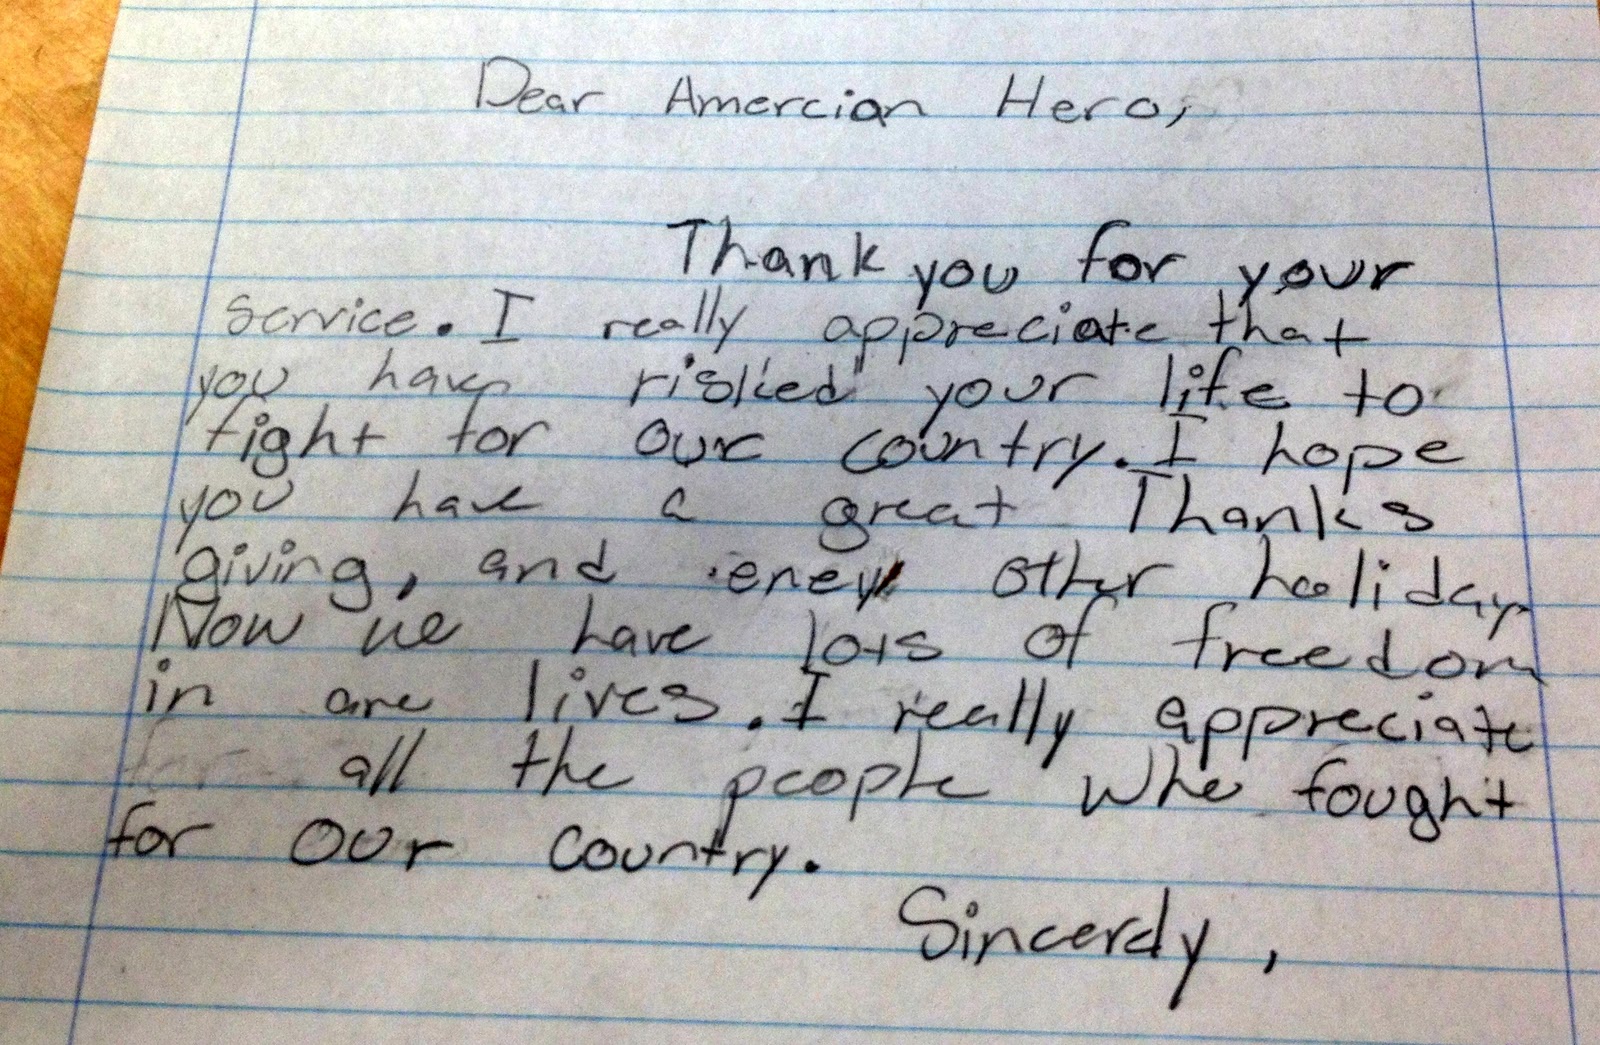 Dear Amercian Hero,
Thank you for your
service. I really appreciate that
you have risked your life to
fight for our country. I hope
you have a great Thanks
giving, and eney other holiday
Now we have lots of freedom
in are lives. I really appreciate
for all the people who fought
for our country.
Sincerely,